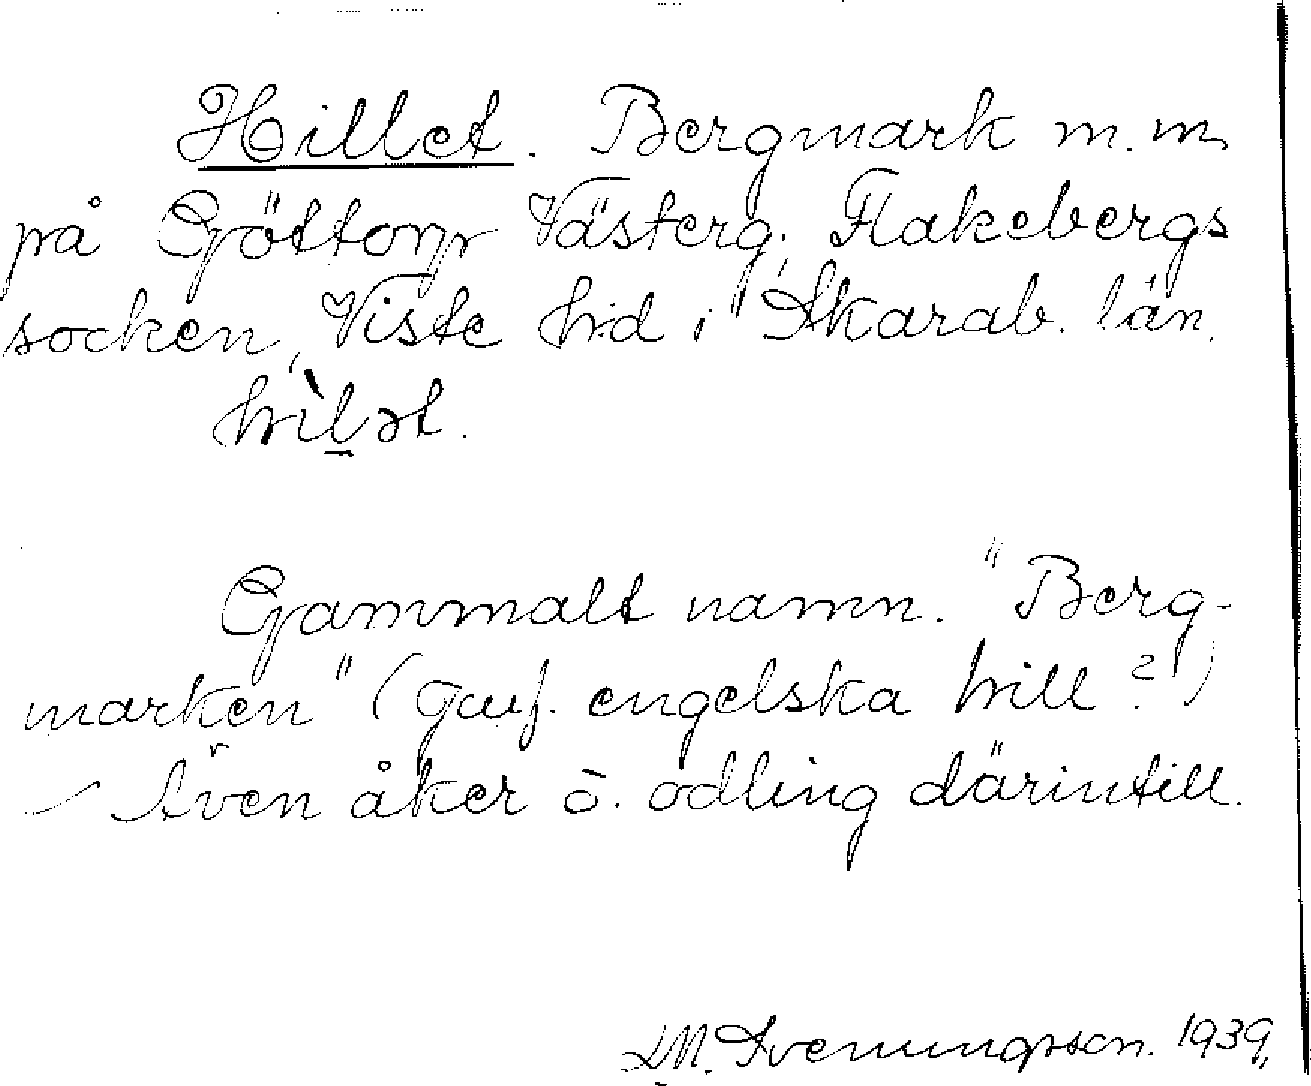 Hillet. Bergmark m.m.
på Göttorp, Västerg. Flakebergs
socken, Viste hd i Skarab. län.
hìlət.
Gammalt namn. "Berg-
marken" (jmf. engelska hill?)
Även åker o. odling därintill.
M. Svenungsson. 1939.